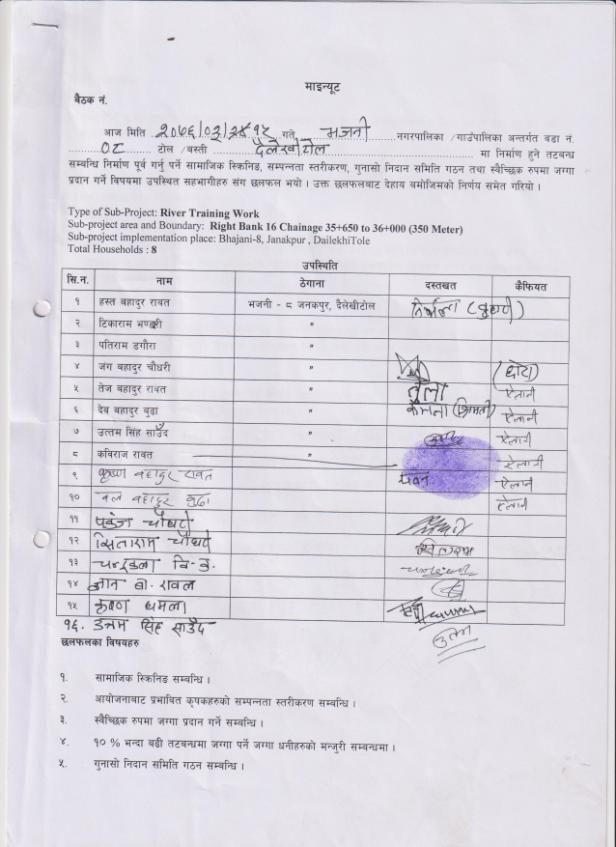 माइन्यूट
बैठक नं.
आज मिति २०७६।०३। १५ गते भजनी नगरपालिका /गाउंपालिका अन्तर्गत वडा नं.
०८ टोल /वस्ती दैलेखीटोल मा निर्माण हुने तटबन्ध
सम्बन्धि निर्माण पूर्व गर्नु पर्ने सामाजिक स्क्रिनिङ, सम्पन्नता स्तरीकरण, गुनासो निदान समिति गठन तथा स्वैच्छिक रुपमा जग्गा
प्रदान गर्ने विषयमा उपस्थित सहभागीहरु संग छलफल भयो । उक्त छलफलबाट देहाय बमोजिमको निर्णय समेत गरियो ।
Type of Sub-Project: River Training Work
Sub-project area and Boundary: Right Bank 16 Chainage 35+650 to 36+000 (350 Meter)
Sub-project implementation place: Bhajani-8, Janakpur , DailekhiTole
Total Households : 8
उपस्थिति
सि.न. नाम ठेगाना दस्तखत कैफियत
१ हस्त बहादुर रावत भजनी - ८ जनकपुर, दैलेखीटोल निर्मला (बुहारी)
२ टिकाराम भण्डारी "
३ पतिराम डगौरा "
४ जंग बहादुर चौधरी " (छोरा)
५ तेज बहादुर रावत " तुला ऐलानी
६ देव बहादुर बुढा " (श्रिमती) ऐलानी
७ उत्तम सिंह साउँद " ऐलानी
८ कविराज रावत " ऐलानी
९ कृष्ण बहादुर रावत पवन ऐलानी
१० बल बहादुर बुढा ऐलानी
११ पंकज चौधरी
१२ सिताराम चौधरी
१३ चन्द्रकला वि.क.
१४ ज्ञान ब. रावल
१५ कृष्ण धमला
१६. उत्तम सिंह साउँद उत्तम
छलफलका विषयहरु
१. सामाजिक स्क्रिनिङ सम्बन्धि ।
२. आयोजनाबाट प्रभावित कृषकहरुको सम्पन्नता स्तरीकरण सम्बन्धि ।
३. स्वैच्छिक रुपमा जग्गा प्रदान गर्ने सम्बन्धि ।
४. १० % भन्दा बढी तटबन्धमा जग्गा पर्ने जग्गा धनीहरुको मन्जुरी सम्बन्धमा ।
५. गुनासो निदान समिति गठन सम्बन्धि ।